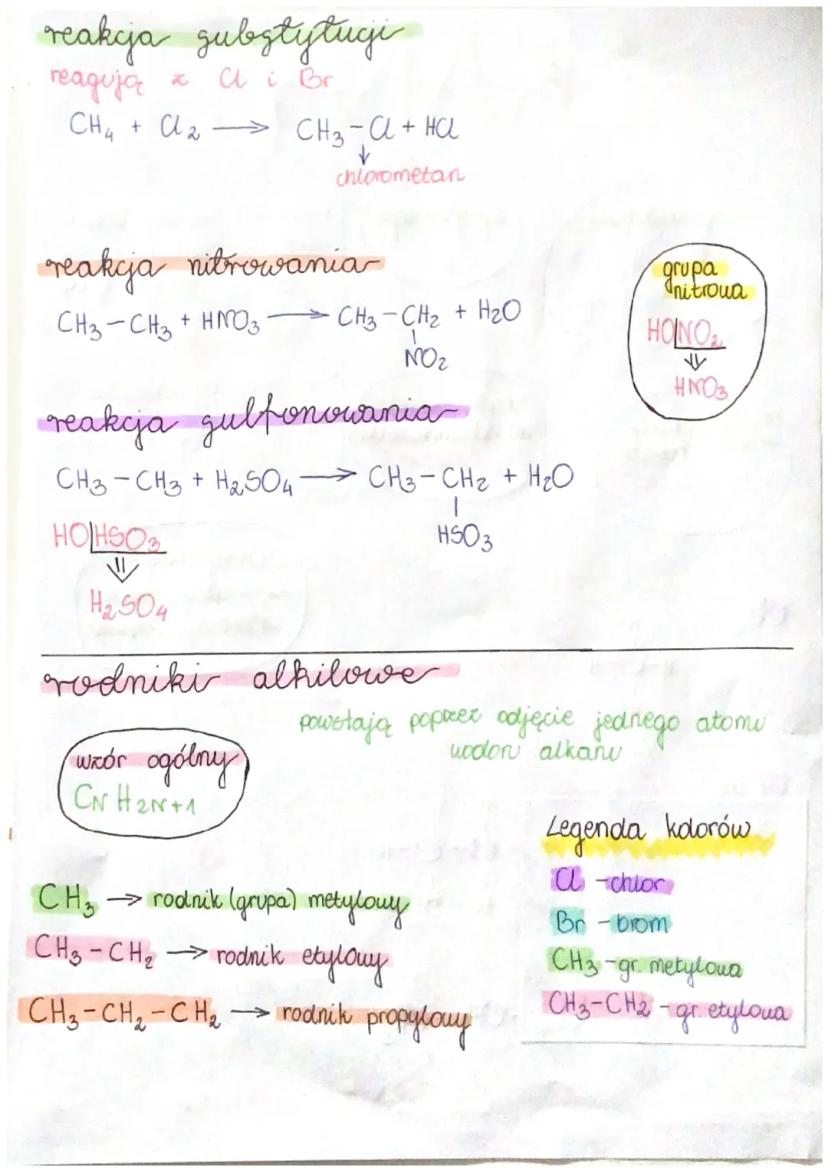 reakcja substytucji
reagują z Cl i Br
CH₄ + Cl₂ → CH₃-Cl + HCl
↓
chlorometan
reakcja nitrowania
CH₃-CH₃ + HNO₃ → CH₃-CH₂ + H₂O
NO₂
grupa
nitrowa
HO|NO₂
⇓
HNO₃
reakcja sulfonowania
CH₃-CH₃ + H₂SO₄ → CH₃-CH₂ + H₂O
HSO₃
HO|HSO₃
⇓
H₂SO₄
rodniki alkilowe
powstają poprzez odjęcie jednego atomu
wodoru alkanu
wzór ogólny
CN H2N+1
CH₃ → rodnik (grupa) metylowy
CH₃-CH₂ → rodnik etylowy
CH₃-CH₂-CH₂ → rodnik propylowy
Legenda kolorów
Cl - chlor
Br - brom
CH₃ - gr. metylowa
CH₃-CH₂ - gr. etylowa